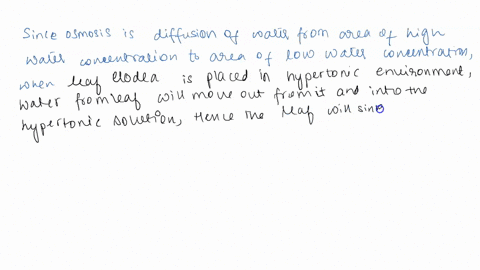 Since osmosis is diffusion of water from area of high
water concentration to area of low water concentration,
when leaf Elodea is placed in hypertonic environment,
water from leaf will move out from it and into the
hypertonic solution, Hence the leaf will sink